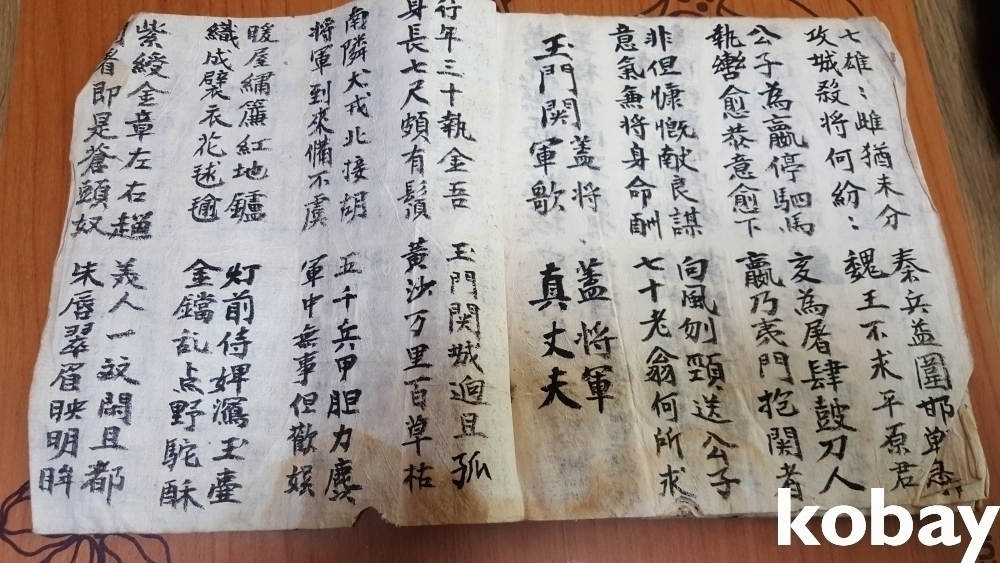 七雄〻雌猶未分
攻城殺將何紛〻
秦兵益圍邯鄲
魏王不求平原君
公子為嬴停駟馬
執轡愈恭意愈下
亥為屠肆鼓刀人
嬴乃夷門抱関者
非但慷慨献良謀
意氣無將身命酬
向風刎頸送公子
七十老翁何所求
玉門関蓋將軍歌
蓋將軍
真丈夫
行年三十執金吾
身長七尺頗有鬚
玉門関城迥且孤
黃沙万里百草枯
南隣犬戎北接胡
將軍到來備不虞
五千兵甲胆力麄
軍中無事但歡娛
暖屋繡簾紅地鑪
織成襞衣花
灯前侍婢瀉玉壺
金鐺乱点野駝酥
紫綬金章左右趨
着即是蒼頭奴
美人一双閑且都
朱唇翠眉映明眸
kobay